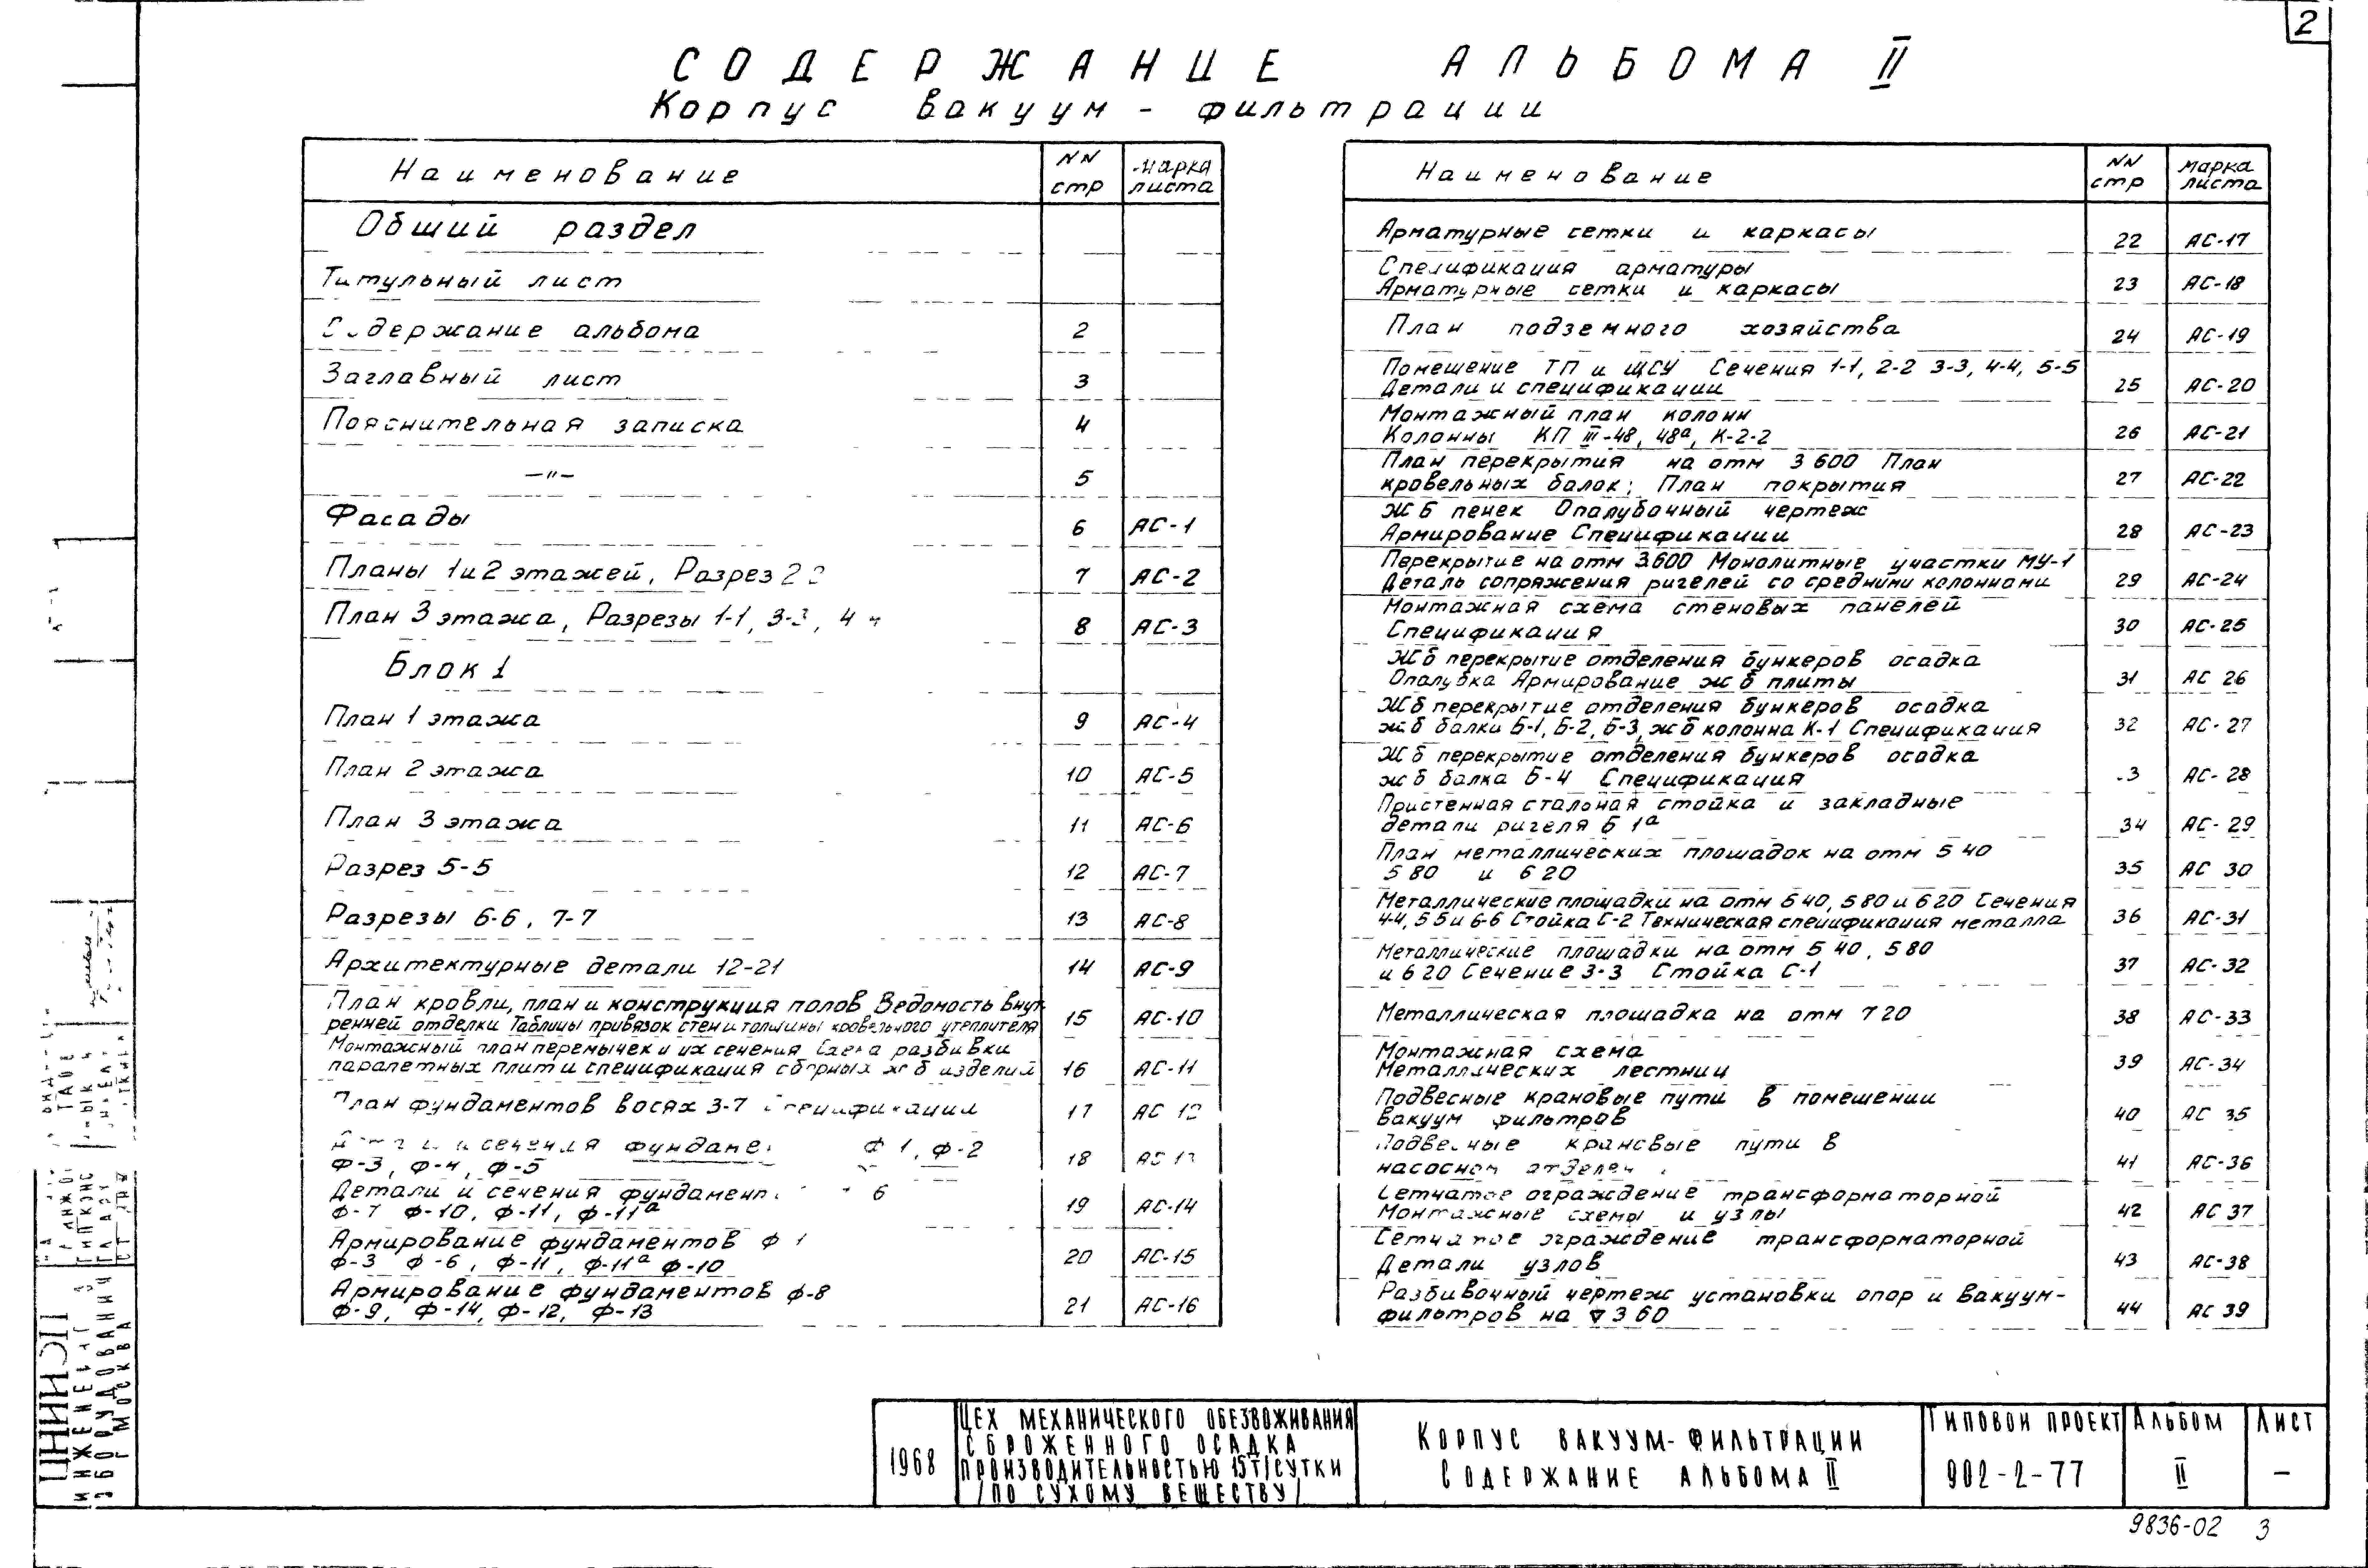 2
СОДЕРЖАНИЕ АЛЬБОМА II
Корпус вакуум-фильтрации
Наименование NN стр Марка листа
Общий раздел
Титульный лист
Содержание альбома 2
Заглавный лист 3
Пояснительная записка 4
—"— 5
Фасады 6 АС-1
Планы 1 и 2 этажей, Разрез 2 7 АС-2
План 3 этажа, Разрезы 1-1, 3-3, 4 8 АС-3
Блок 1
План 1 этажа 9 АС-4
План 2 этажа 10 АС-5
План 3 этажа 11 АС-6
Разрез 5-5 12 АС-7
Разрезы 6-6, 7-7 13 АС-8
Архитектурные детали 12-21 14 АС-9
План кровли, план и конструкция полов Ведомость внут-
ренней отделки Таблицы привязок стен и толщины кровельного утеплителя 15 АС-10
Монтажный план перемычек и их сечения Схема разбивки
парапетных плит и спецификация сборных ж б изделий 16 АС-11
План фундаментов в осях 3-7 Спецификации 17 АС 12
сечения Ф 1, Ф-2
Ф-3, Ф-4, Ф-5 18 АС 13
Детали и сечения 6
Ф-7 Ф-10, Ф-11, Ф-11а 19 АС-14
Армирование фундаментов Ф 1
Ф-3 Ф-6, Ф-11, Ф-11а Ф-10 20 АС-15
Армирование фундаментов Ф-8
Ф-9, Ф-14, Ф-12, Ф-13 21 АС-16
Наименование NN стр Марка листа
Арматурные сетки и каркасы 22 АС-17
Спецификация арматуры
Арматурные сетки и каркасы 23 АС-18
План подземного хозяйства 24 АС-19
Помещение ТП и ЩСУ Сечения 1-1, 2-2 3-3, 4-4, 5-5
Детали и спецификации 25 АС-20
Монтажный план колонн
Колонны КП III-48, 48а, К-2-2 26 АС-21
План перекрытия на отм 3 600 План
кровельных балок; План покрытия 27 АС-22
Ж б пенек Опалубочный чертеж
Армирование Спецификации 28 АС-23
Перекрытие на отм 3.600 Монолитные участки МУ-1
Деталь сопряжения ригелей со средними колоннами 29 АС-24
Монтажная схема стеновых панелей
Спецификация 30 АС-25
Ж б перекрытие отделения бункеров осадка
Опалубка Армирование ж б плиты 31 АС 26
Ж б перекрытие отделения бункеров осадка
ж б балки Б-1, Б-2, Б-3, ж б колонна К-1 Спецификация 32 АС-27
Ж б перекрытие отделения бункеров осадка
ж б балка Б-4 Спецификация 3 АС-28
Пристенная стальная стойка и закладные
детали ригеля Б 1а 34 АС-29
План металлических площадок на отм 5 40
5 80 и 6 20 35 АС 30
Металлические площадки на отм 5 40, 5 80 и 6 20 Сечения
4-4, 5 5 и 6-6 Стойка С-2 Техническая спецификация металла 36 АС-31
Металлические площадки на отм 5 40, 5 80
и 6 20 Сечение 3-3 Стойка С-1 37 АС-32
Металлическая площадка на отм 7 20 38 АС-33
Монтажная схема
Металлических лестниц 39 АС-34
Подвесные крановые пути в помещении
вакуум фильтров 40 АС 35
Подвесные крановые пути в
насосном 41 АС-36
Сетчатое ограждение трансформаторной
Монтажные схемы и узлы 42 АС 37
Сетчатое ограждение трансформаторной
Детали узлов 43 АС-38
Разбивочный чертеж установки опор и вакуум-
фильтров на ∇ 3 60 44 АС 39
1968
ЦЕХ МЕХАНИЧЕСКОГО ОБЕЗВОЖИВАНИЯ
СБРОЖЕННОГО ОСАДКА
ПРОИЗВОДИТЕЛЬНОСТЬЮ 15Т/СУТКИ
/ПО СУХОМУ ВЕЩЕСТВУ/
КОРПУС ВАКУУМ-ФИЛЬТРАЦИИ
СОДЕРЖАНИЕ АЛЬБОМА II
ТИПОВОЙ ПРОЕКТ
902-2-77
АЛЬБОМ
II
ЛИСТ
—
9836-02 3
ЦНИИЭП
ИНЖЕНЕРНОГО
ОБОРУДОВАНИЯ
Г МОСКВА